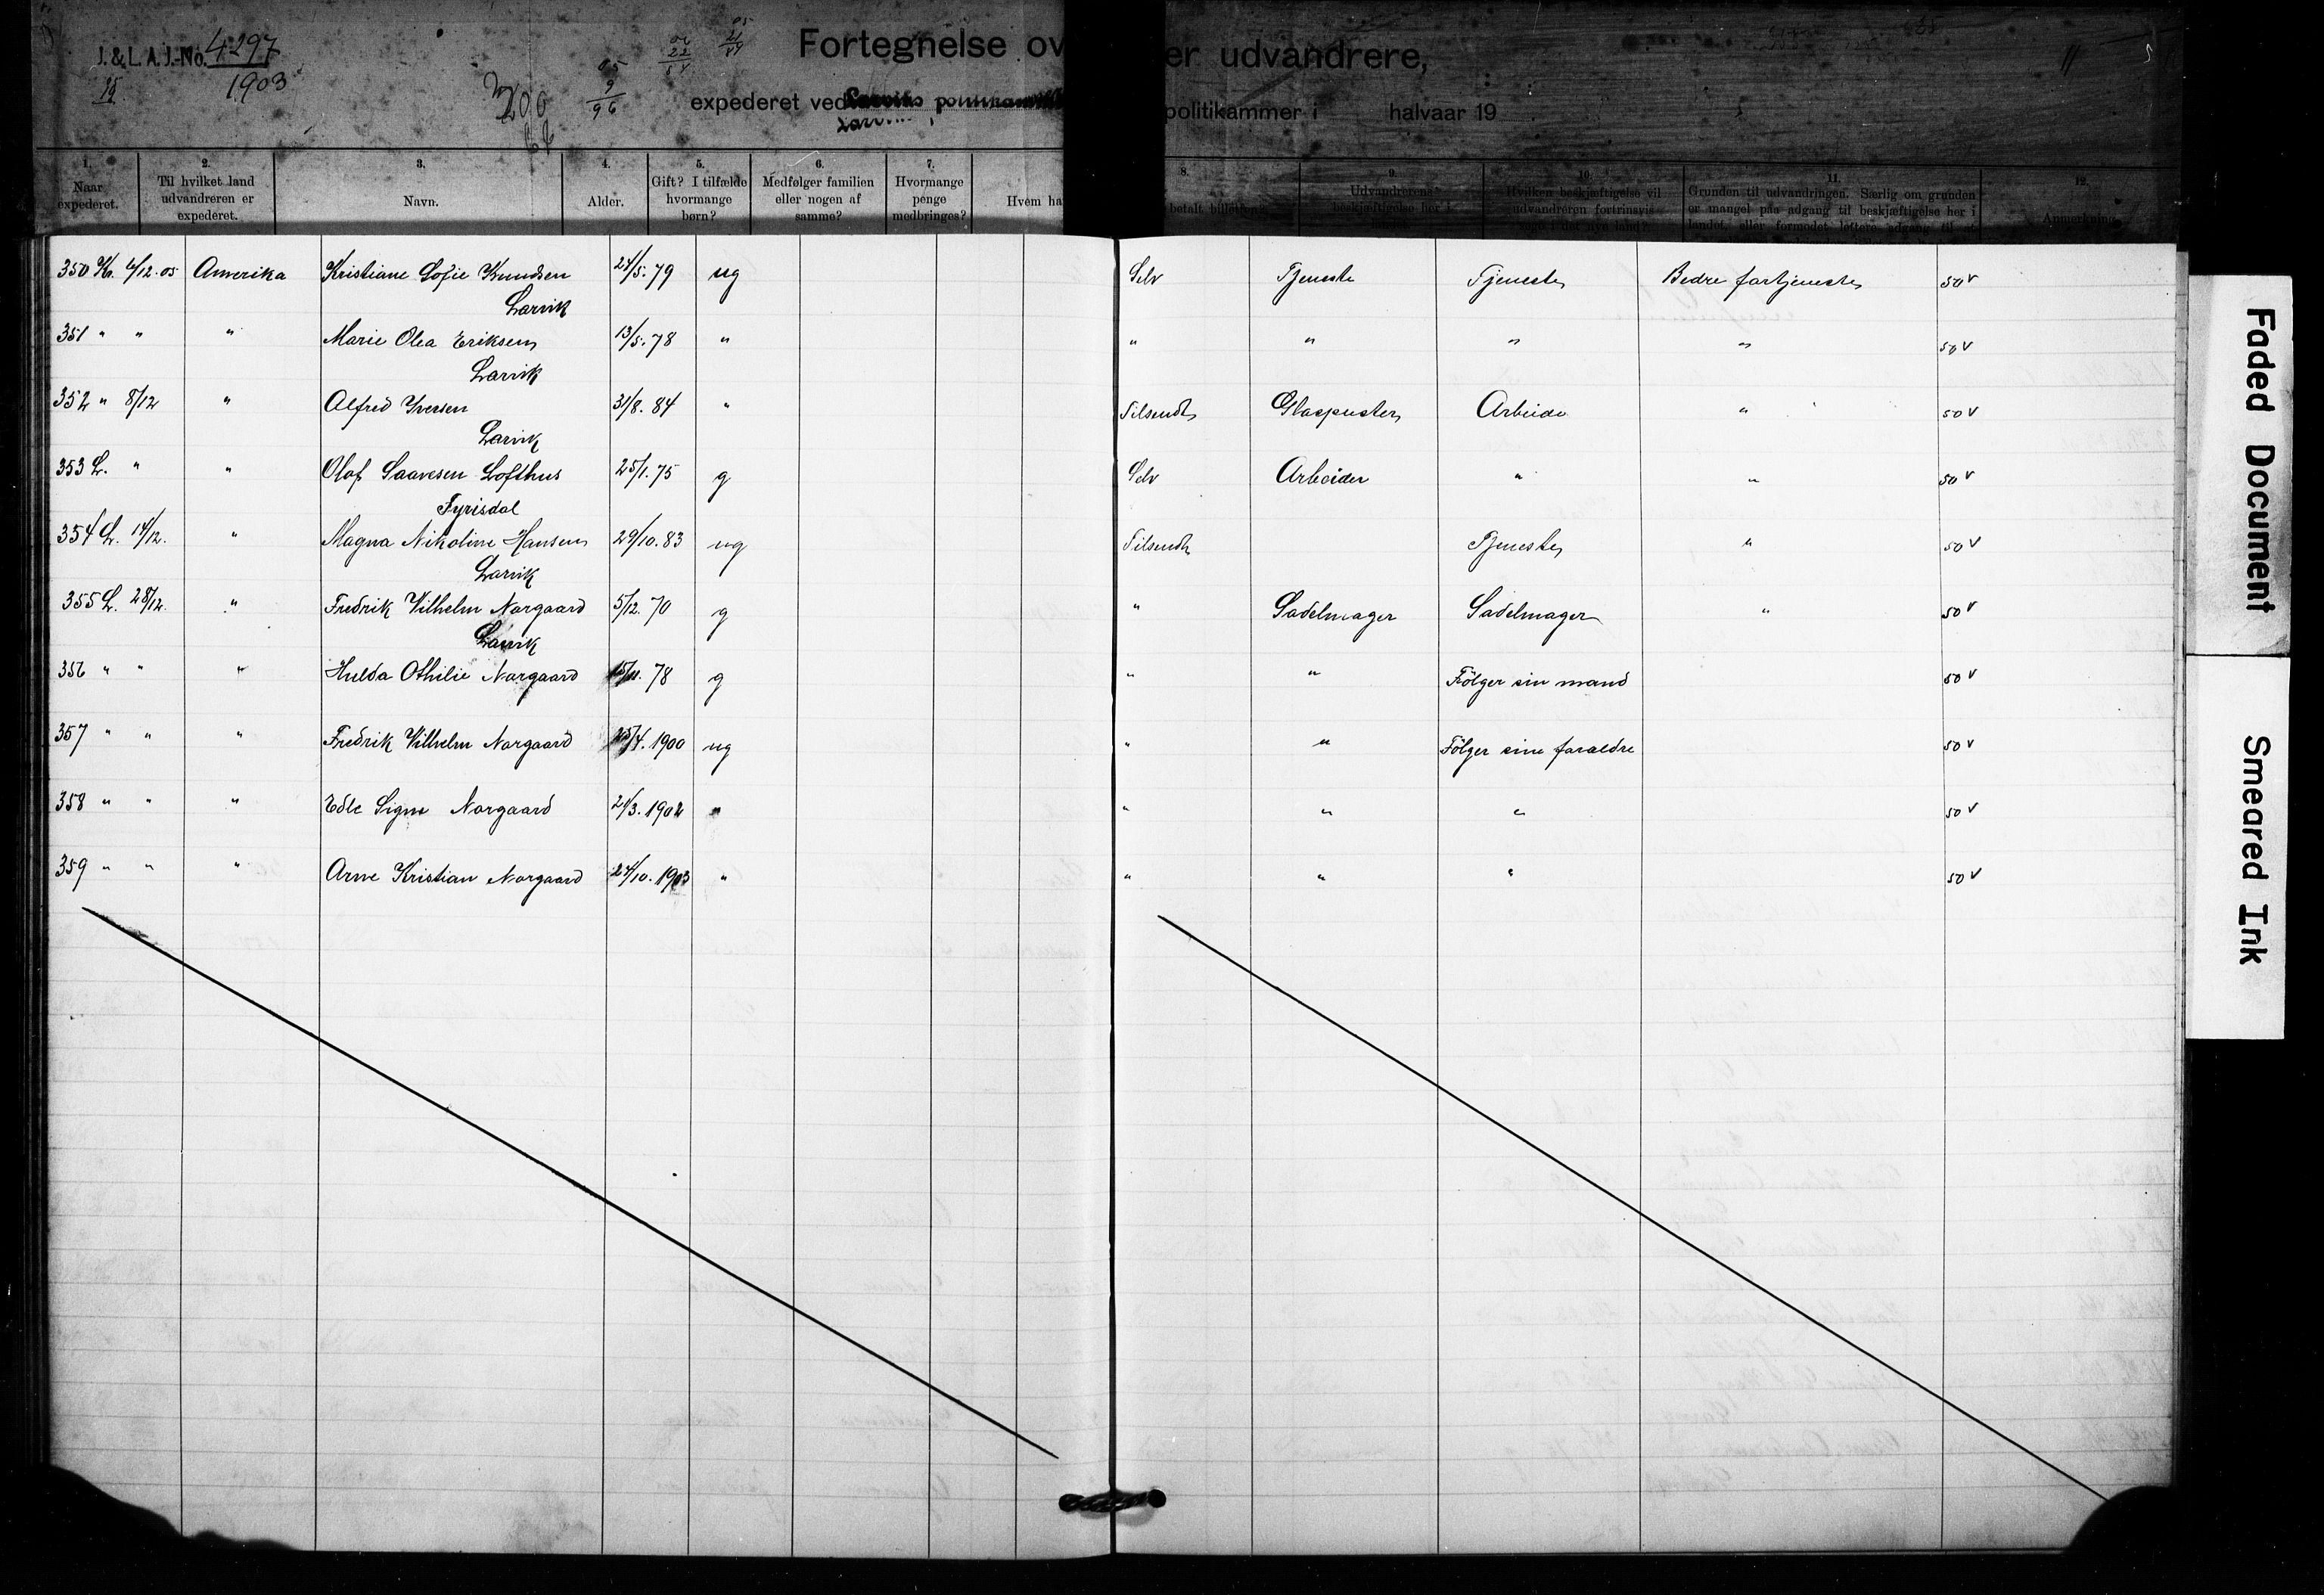 J. & L. A. J.-No. 4297
1903
Fortegnelse over udvandrere,
expederet ved politikammer i halvaar 19
1. Naar expederet.
2. Til hvilket land udvandreren er expederet.
3. Navn.
4. Alder.
5. Gift? I tilfælde hvormange børn?
6. Medfølger familien eller nogen af samme?
7. Hvormange penge medbringes?
8. Hvem ha betalt billetten?
9. Udvandrerens beskjæftigelse her i
10. Hvilken beskjæftigelse vil udvandreren fortrinsvis søge i det nye land?
11. Grunden til udvandringen. Særlig om grunden er mangel paa adgang til beskjæftigelse her i landet, eller formodet lettere adgang til at
12. Anmerkning
350 Kr. 6/12.05 Amerika Kristiane Sofie Knudsen 21/5.79 ug Selv Tjeneste Tjeneste Bedre fortjeneste 50 v
Larvik
351 " " " Marie Olea Eriksen 13/5.78 " " " " " 50 v
Larvik
352 " 8/12 " Alfred Iversen 31/8.84 " Tilsendt Glaspuster Arbeide " 50 v
Larvik
353 L. " " Olaf Saavesen Lofthus 25/1.75 g Selv Arbeider " " 50 v
Fyrisdal
354 L. 14/12. " Magna Nikoline Hansen 29/10.83 ug Tilsendt Tjeneste " 50 v
Larvik
355 L. 28/12. " Fredrik Vilhelm Norgaard 5/12.70 g " Sadelmager Sadelmager " 50 v
Larvik
356 " " " Hulda Othilie Norgaard 15/11.78 g " " Følger sin mand 50 v
357 " " " Fredrik Vilhelm Norgaard 25/4.1900 ug " " Følger sine foraldre 50 v
358 " " " Edle Signe Norgaard 21/3.1902 " " " " 50 v
359 " " " Arne Kristian Norgaard 24/10.1903 " " " " 50 v
Faded Document
Smeared Ink